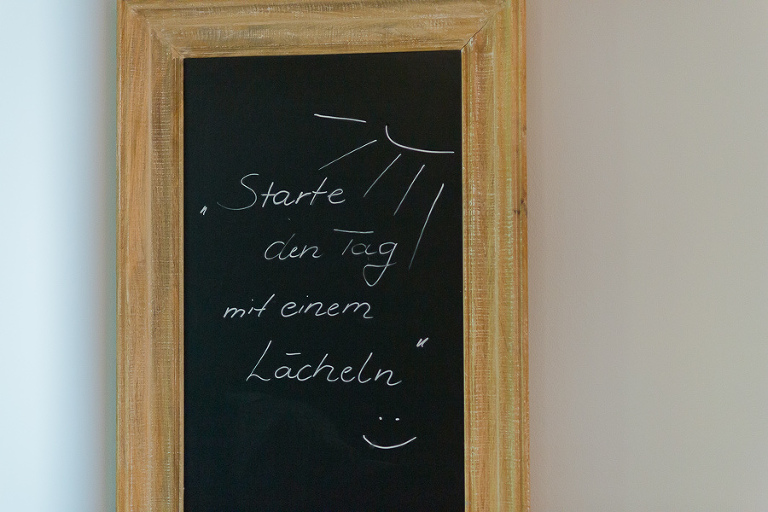 „Starte
den Tag
mit einem
Lächeln“